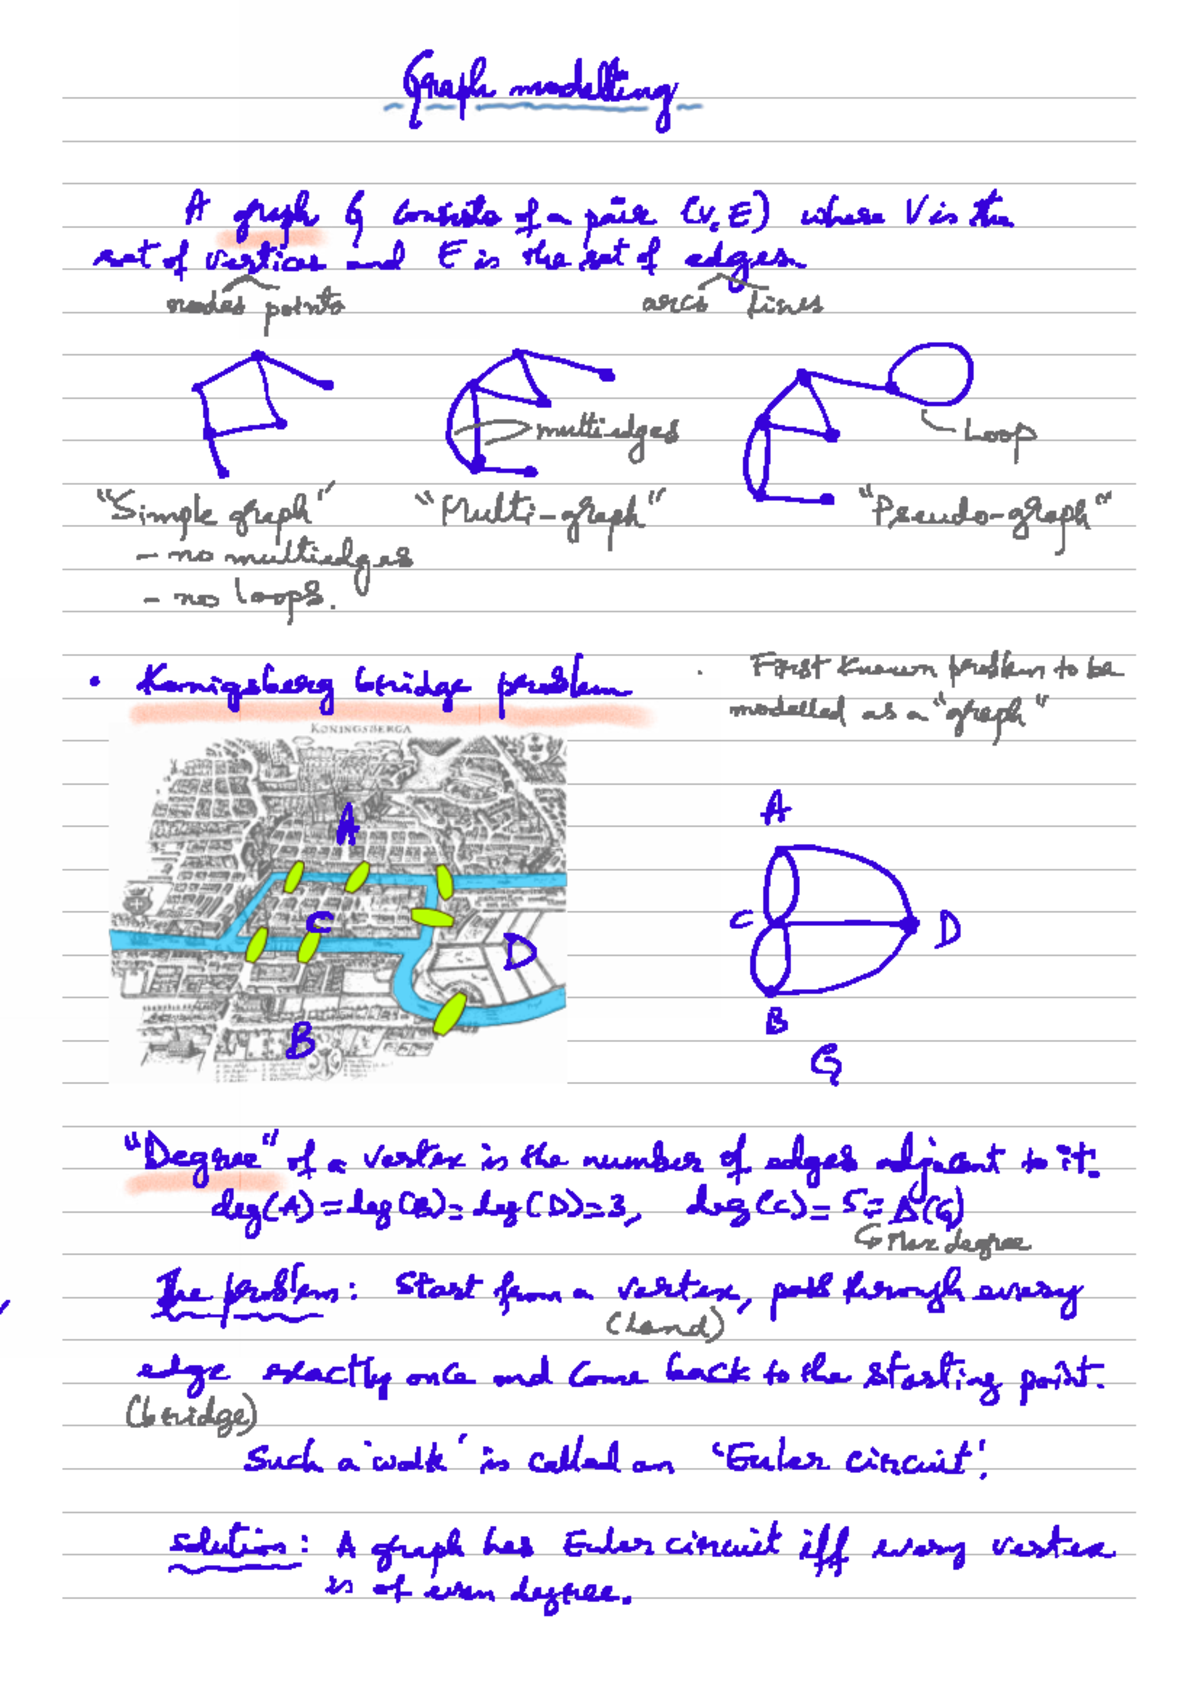 Graph modelling
A graph G consists of a pair (V, E) where V is the
set of vertices and E is the set of edges.
nodes points arcs lines
multiedges
Loop
"Simple graph" "Multi-graph" "Pseudo-graph"
- no multiedges
- no loops.
• Konigsberg bridge problem
· First known problem to be
modelled as a "graph"
KONINGSBERGA
A
C
D
B
A
C D
B
G
"Degree" of a vertex is the number of edges adjacent to it.
deg(A) = deg(B) = deg(D) = 3, deg(C) = 5 = Δ(G)
↳ Max degree
The problem: Start from a vertex, pass through every
(Land)
edge exactly once and come back to the starting point.
(bridge)
Such a 'walk' is called an 'Euler circuit'.
solution: A graph has Euler circuit iff every vertex
is of even degree.